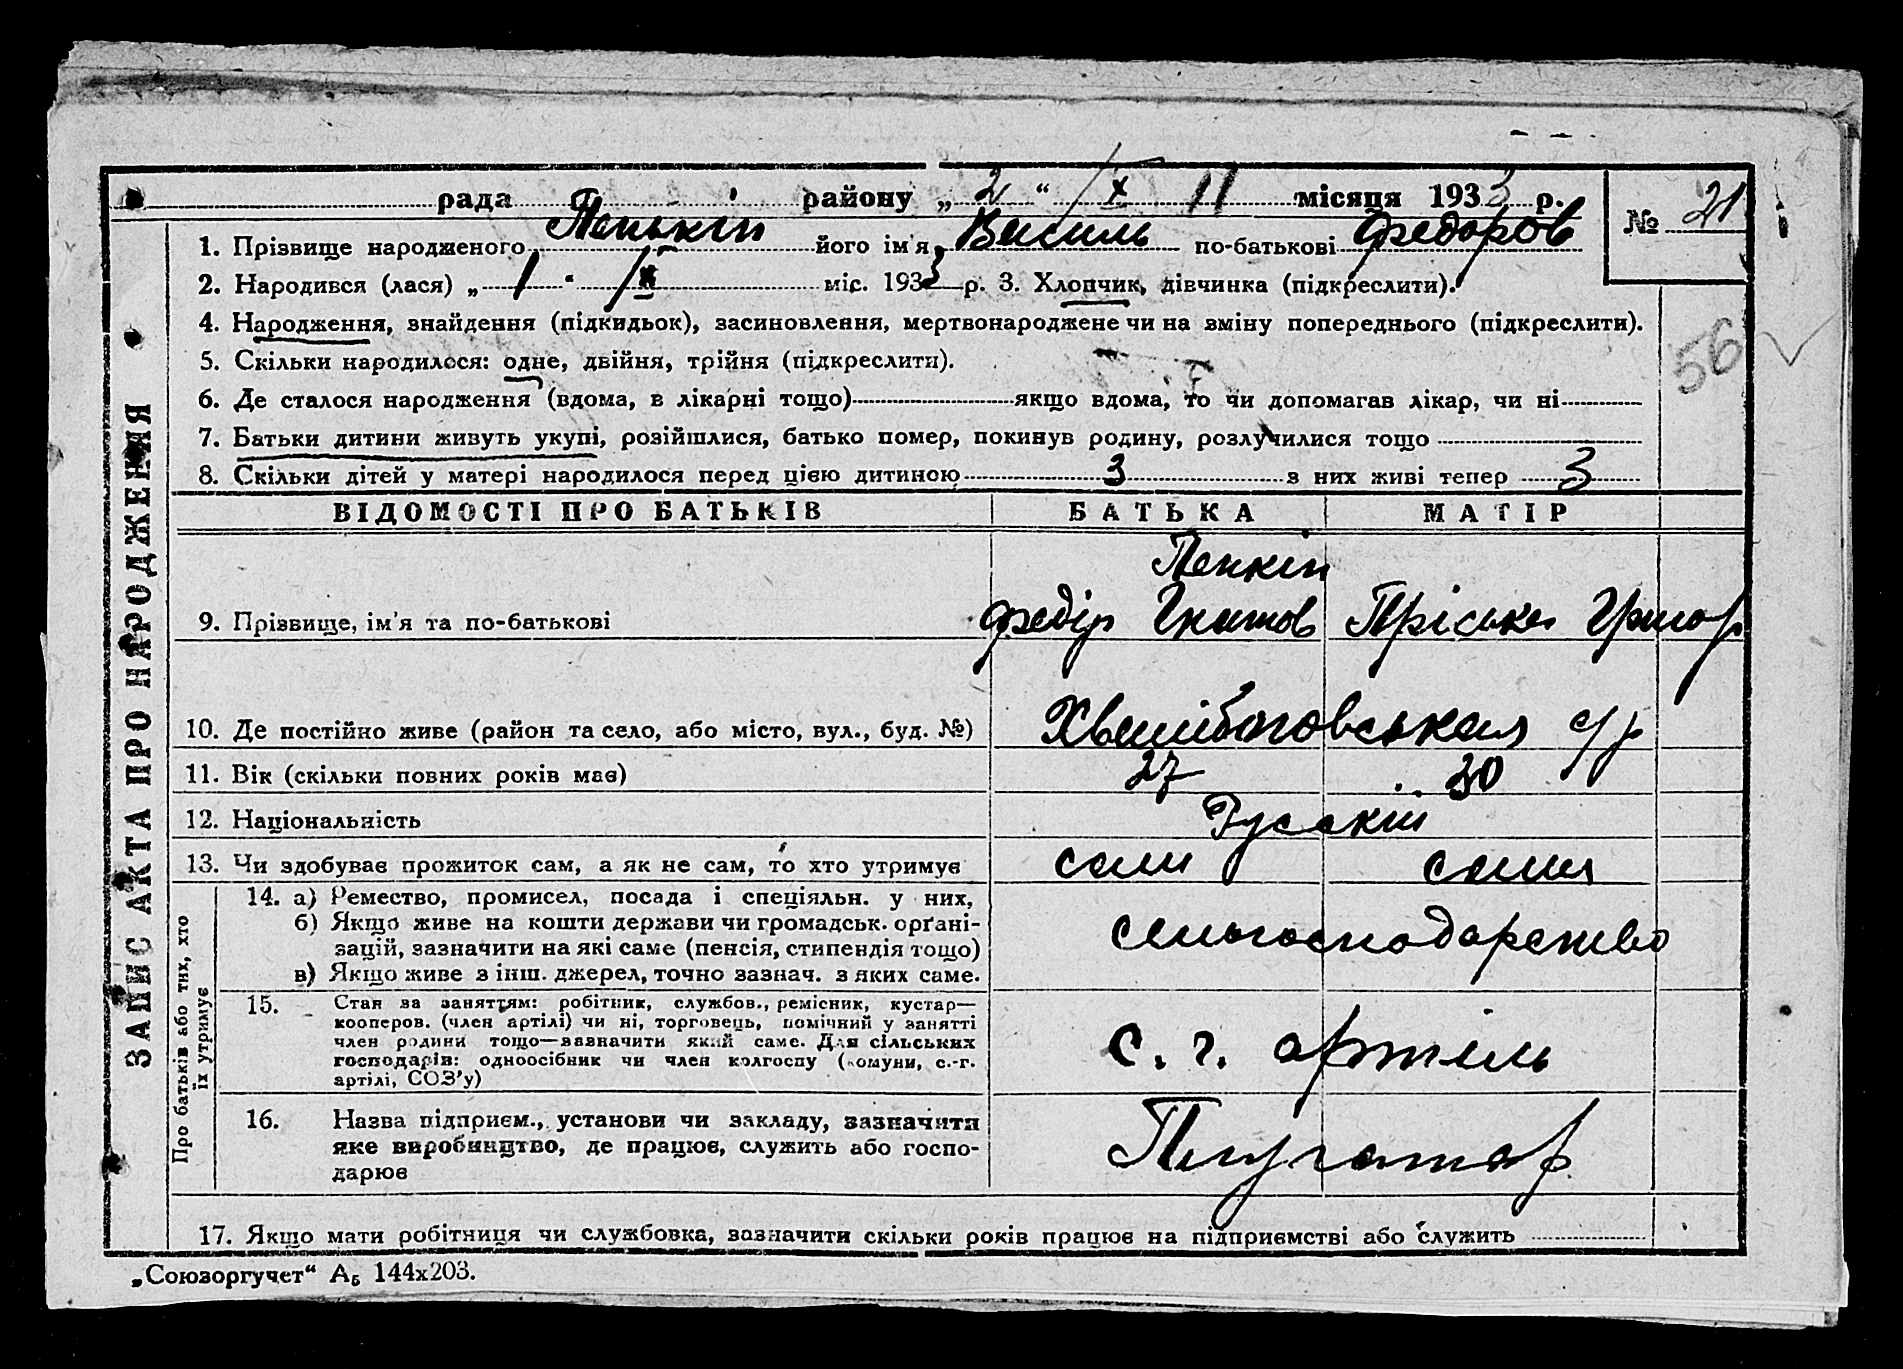 рада районуเ „2“ X 11 місяця 1933 р. № 21
1. Прізвище народженого Пенькін його ім'я Василь по-батькові Федоров
2. Народився (лася) „1“ X міс. 1933 р. 3. Хлопчик, дівчинка (підкреслити).
4. Народження, знайдення (підкидьок), засиновлення, мертвонароджене чи на зміну попереднього (підкреслити).
56
5. Скільки народилося: одне, двійня, трійня (підкреслити).
6. Де сталося народження (вдома, в лікарні тощо) якщо вдома, то чи допомагав лікар, чи ні
7. Батьки дитини живуть укупі, розійшлися, батько помер, покинув родину, розлучилися тощо
8. Скільки дітей у матері народилося перед цією дитиною 3 з них живі тепер 3
ВІДОМОСТІ ПРО БАТЬКІВ БАТЬКА МАТІР
Пенкін
9. Прізвище, ім'я та по-батькові Федір Гнатов Пріська Григор
10. Де постійно живе (район та село, або місто, вул., буд. №) с/р
11. Вік (скільки повних років має) 27 30
12. Національність Русскій
13. Чи здобуває прожиток сам, а як не сам, то хто утримує сам сама
14. а) Ремество, промисел, посада і спеціяльн. у них,
б) Якщо живе на кошти держави чи громадськ. орґані-
зацій, зазначити на які саме (пенсія, стипендія тощо)
в) Якщо живе з інш. джерел, точно зазнач. з яких саме.
15. Стан за заняттям: робітник, службов., ремісник, кустар—
кооперов. (член артілі) чи ні, торговець, помічний у занятті
член родини тощо—зазначити який саме. Для сільських
господарів: одноосібник чи член колгоспу (комуни, с.-г.
артілі, СОЗ'у)
с. г. артіль
16. Назва підприєм., установи чи закладу, зазначити
яке виробництво, де працює, служить або госпо-
дарює
Плугатар
17. Якщо мати робітниця чи службовка, зазначити скільки років працює на підприємстві або служить
„Союзоргучет“ А₅ 144х203.
ЗАПИС АКТА ПРО НАРОДЖЕННЯ
Про батьків або тих, хто
їх утримує